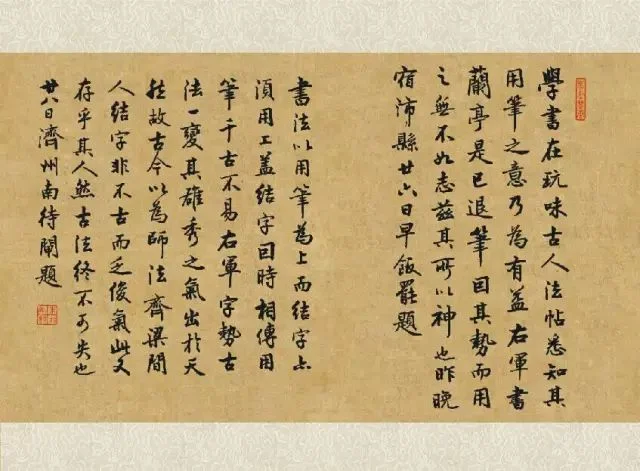 學書在玩味古人法帖悉知其
用筆之意乃為有益右軍書
蘭亭是已退筆因其勢而用
之無不如志茲其所以神也昨晚
宿沛縣廿六日早飯罷題
書法以用筆為上而結字亦
須用工盖結字因時相傳用
筆千古不易右軍字勢古
法一變其雄秀之氣出於天
然故古今以為師法齊梁間
人結字非不古而乏俊氣此又
存乎其人然古法終不可失也
廿八日濟州南待閘題